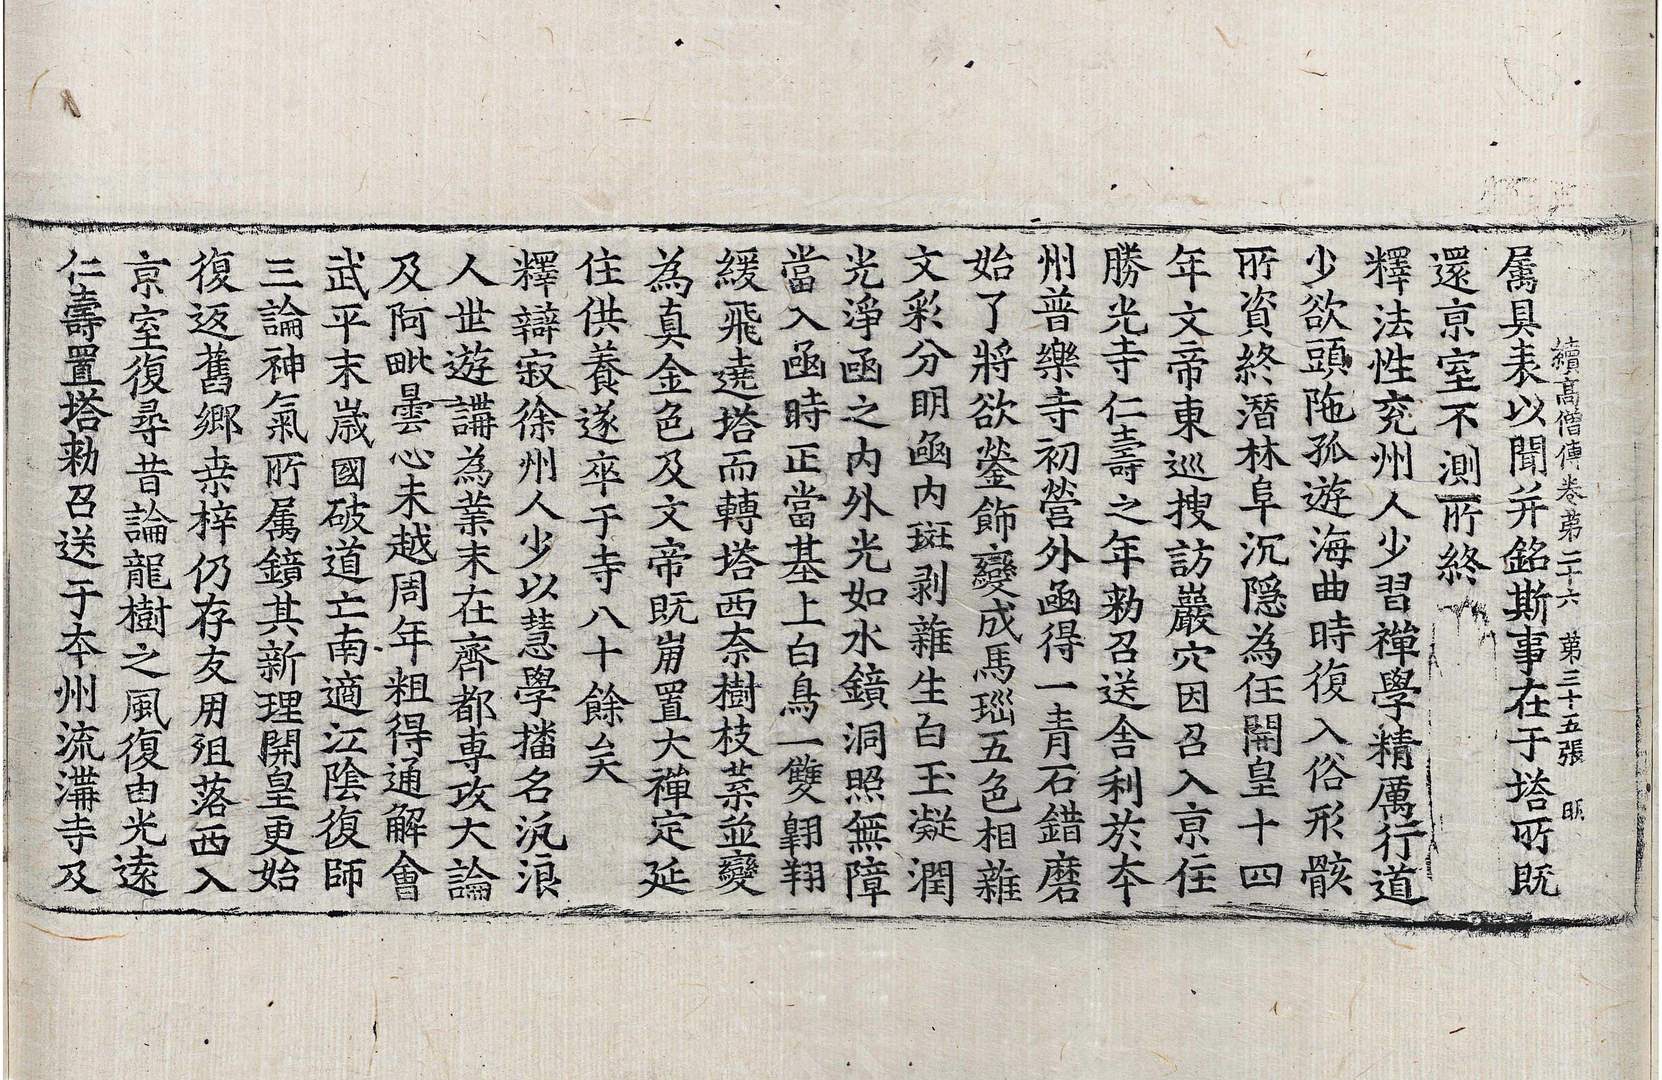 續高僧傳卷苐二十六 苐三十五張 明
属具表以聞并銘斯事在于塔所既
還京室不測所終
釋法性兖州人少習禪學精厲行道
少欲頭陁孤遊海曲時復入俗形骸
所資終潛林阜沉隠為任開皇十四
年文帝東巡搜訪巖穴因召入京住
勝光寺仁壽之年勑召送舍利於夲
州普樂寺初營外函得一青石錯磨
始了將欲鎣飾變成馬瑙五色相雜
文彩分明函内斑剥雜生白玉凝潤
光淨函之内外光如水鏡洞照無障
當入函時正當基上白鳥一雙翱翔
緩飛遶塔而轉塔西柰樹枝葉並變
為真金色及文帝既崩置大禪定延
住供養遂卒于寺八十餘矣
釋辯寂徐州人少以慧學播名汎浪
人世遊講為業末在齊都專攻大論
及阿毗曇心未越周年粗得通解會
武平末歳國破道亡南適江陰復師
三論神氣所属鏡其新理開皇更始
復返舊鄉桒梓仍存友用殂落西入
京室復尋昔論龍樹之風復由光遠
仁壽置塔勑召送于夲州流溝寺及